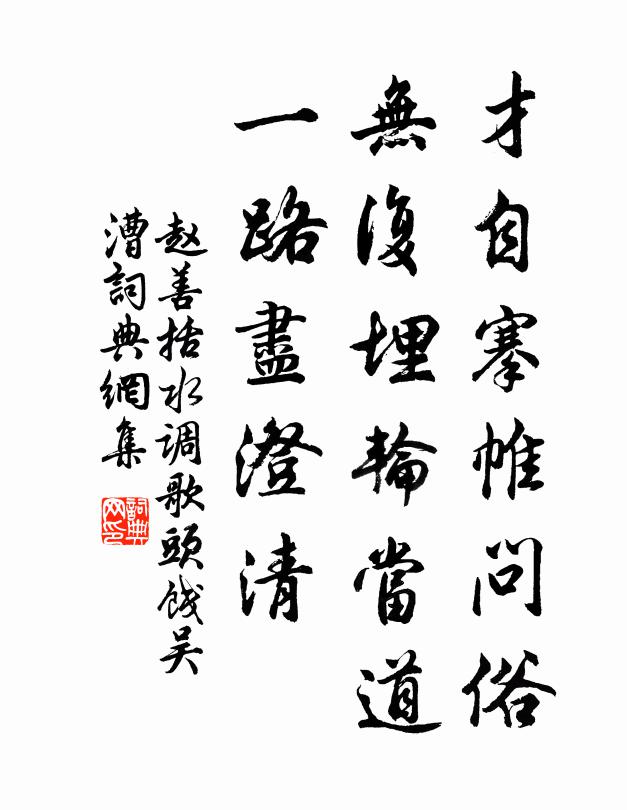 才自搴帷問俗
無復埋輪當道
一路盡澄清
赵善括水调歌頭餞吴
漕詞典網集
詞典网印